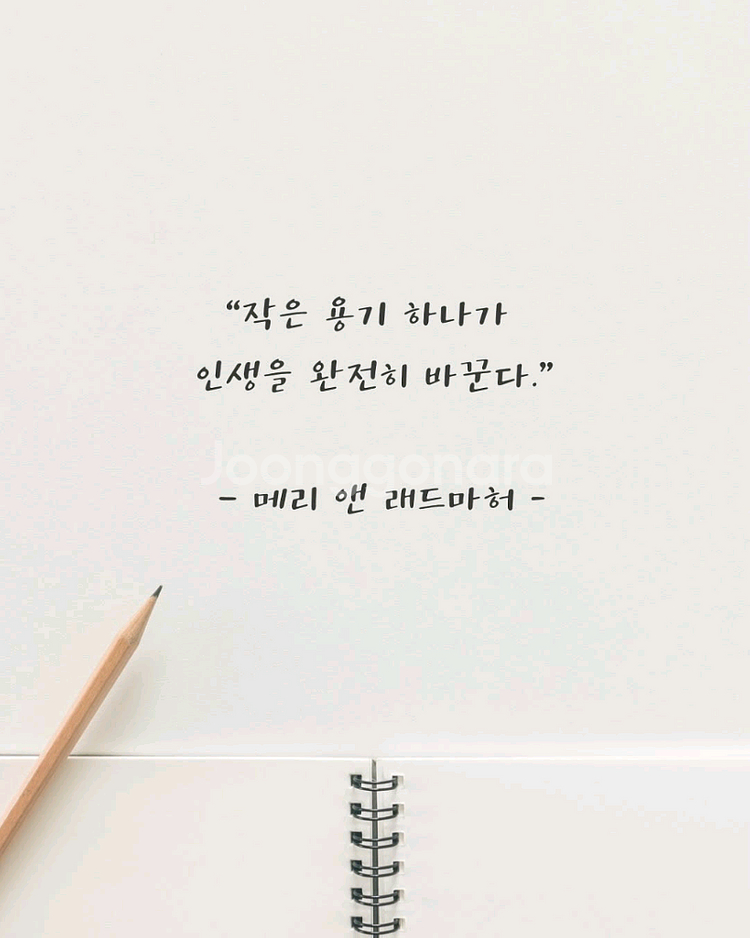 “작은 용기 하나가
인생을 완전히 바꾼다.”
Joonggonara
- 메리 앤 래드마허 -